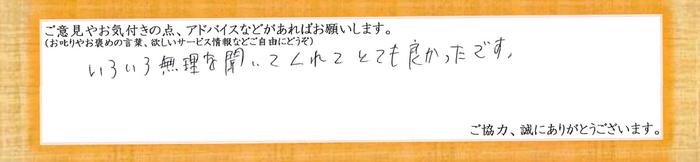 ご意見やお気付きの点、アドバイスなどがあればお願いします。
(お叱りやお褒めの言葉、欲しいサービス情報などご自由にどうぞ)
いろいろ無理な聞いてくれてとても良かったです。
ご協力、誠にありがとうございます。